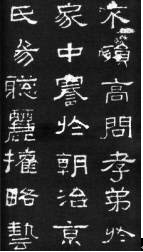 不殞高問孝弟於
家中謇於朝治京
氏易聰麗權略藝